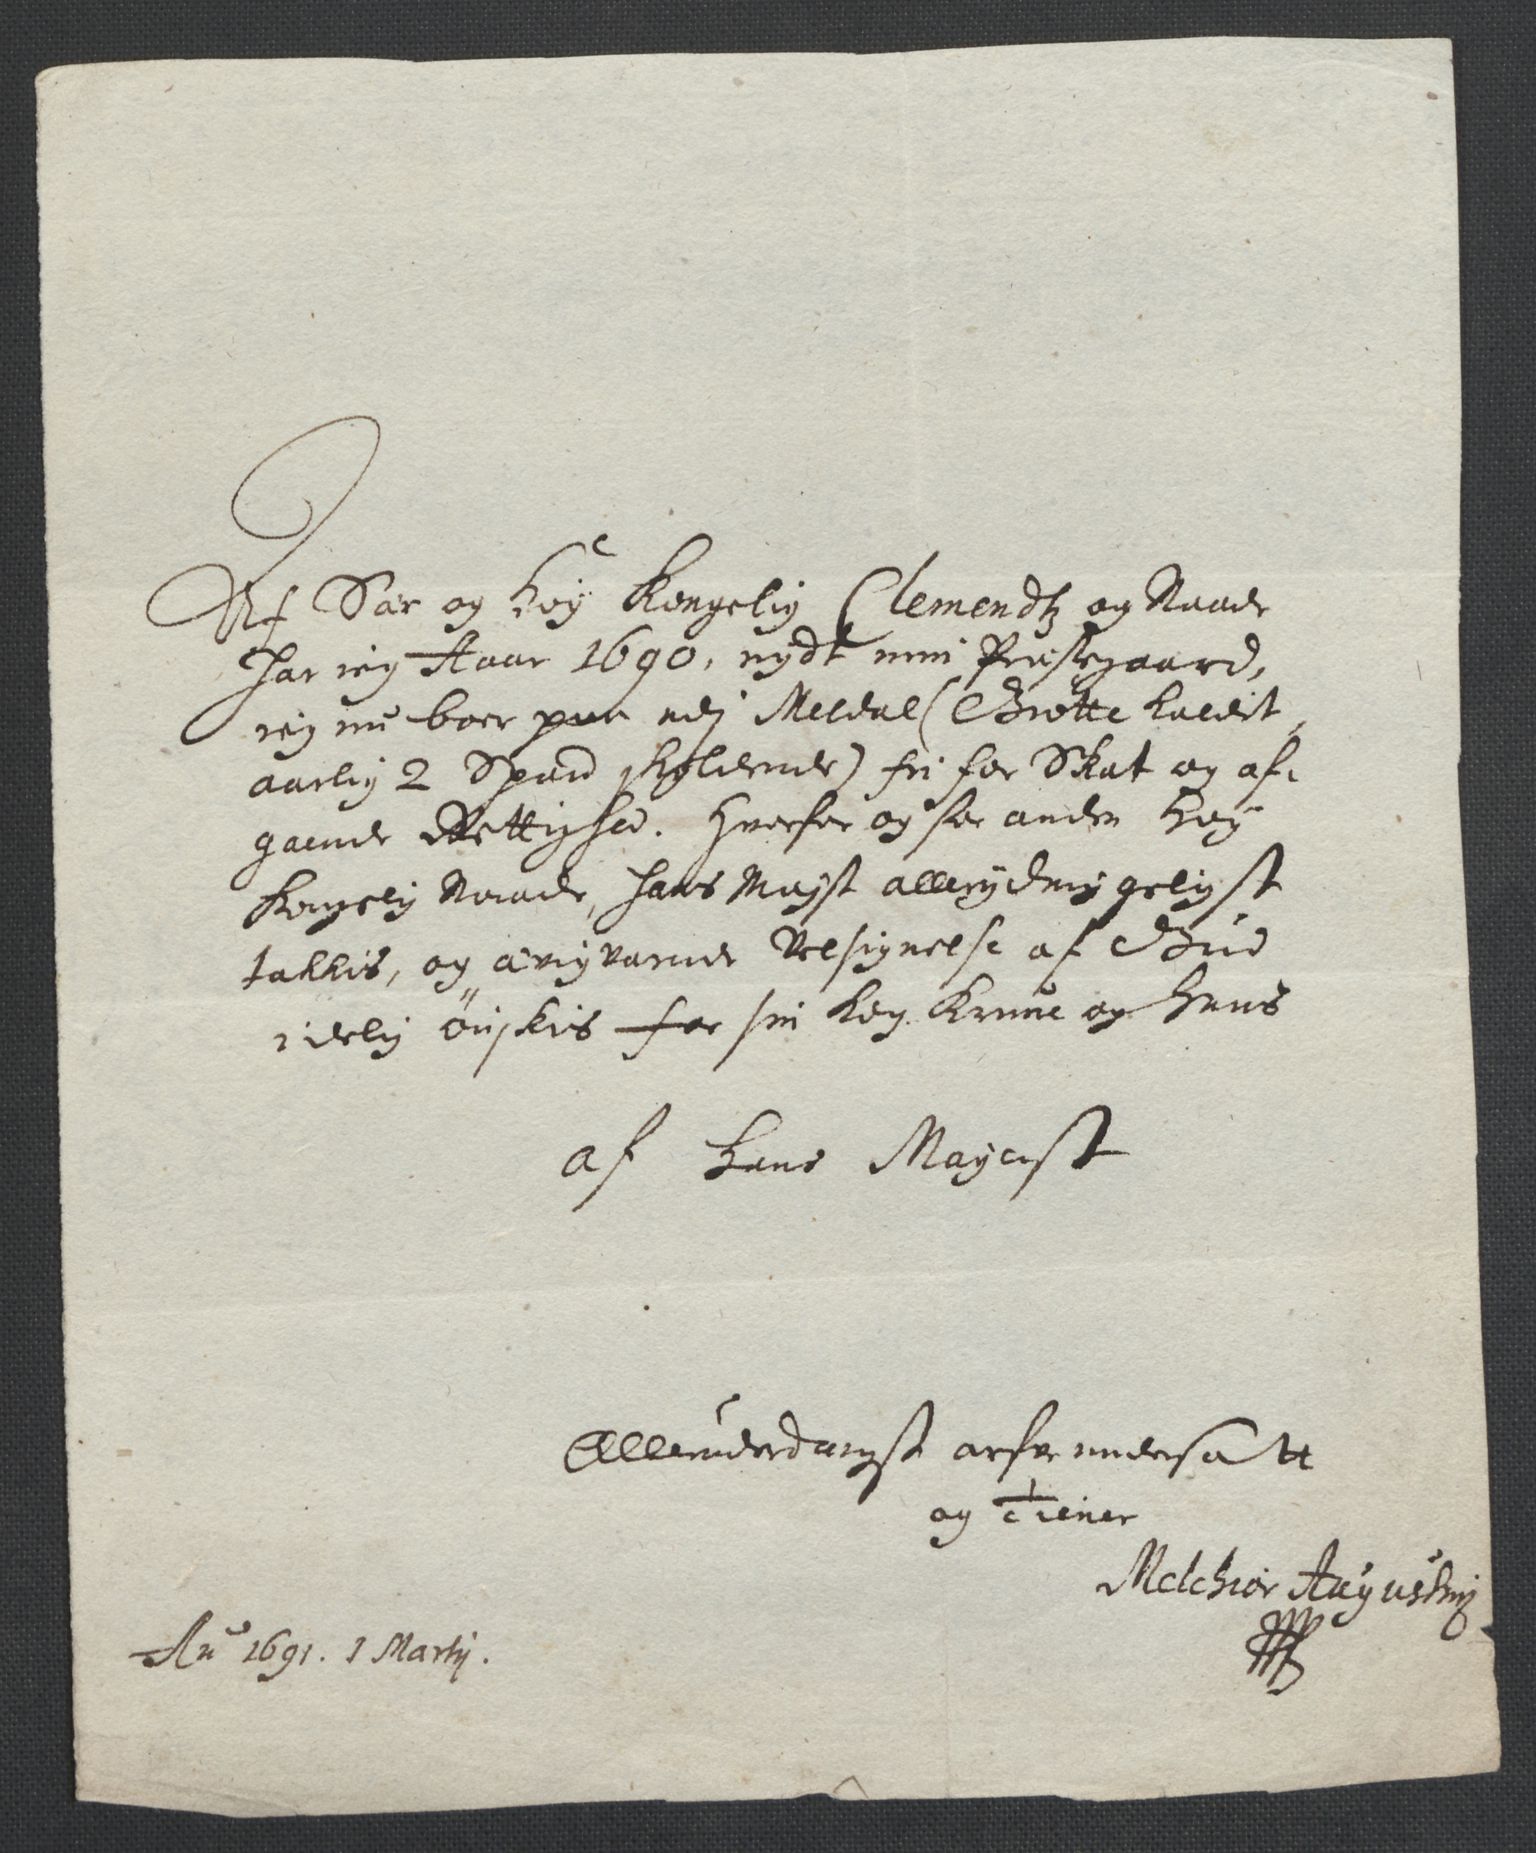 Af Sær og høy Kongelig Clemendtz og Naade
har ieg Aaar 1690, nydt min Præstegaard,
ieg nu boer paa udj Meldal (Grøtte kaldit
aarlig 2 Spand skyldende) fri for Skat og af-
gaaende Rettighed. Hvorfor og for anden høy
Kongelig Naade, hans Mayst allerydmygeligst
takkis, og ævigvarende Velsignelse af Gud
idelig ønskis for sin høy Krune og Huus
af Hans Mayest
Allerunderdanigst arfve undersaatt
og Tiener
Melchior Augustinj
An̄ 1691. 1 Martij.